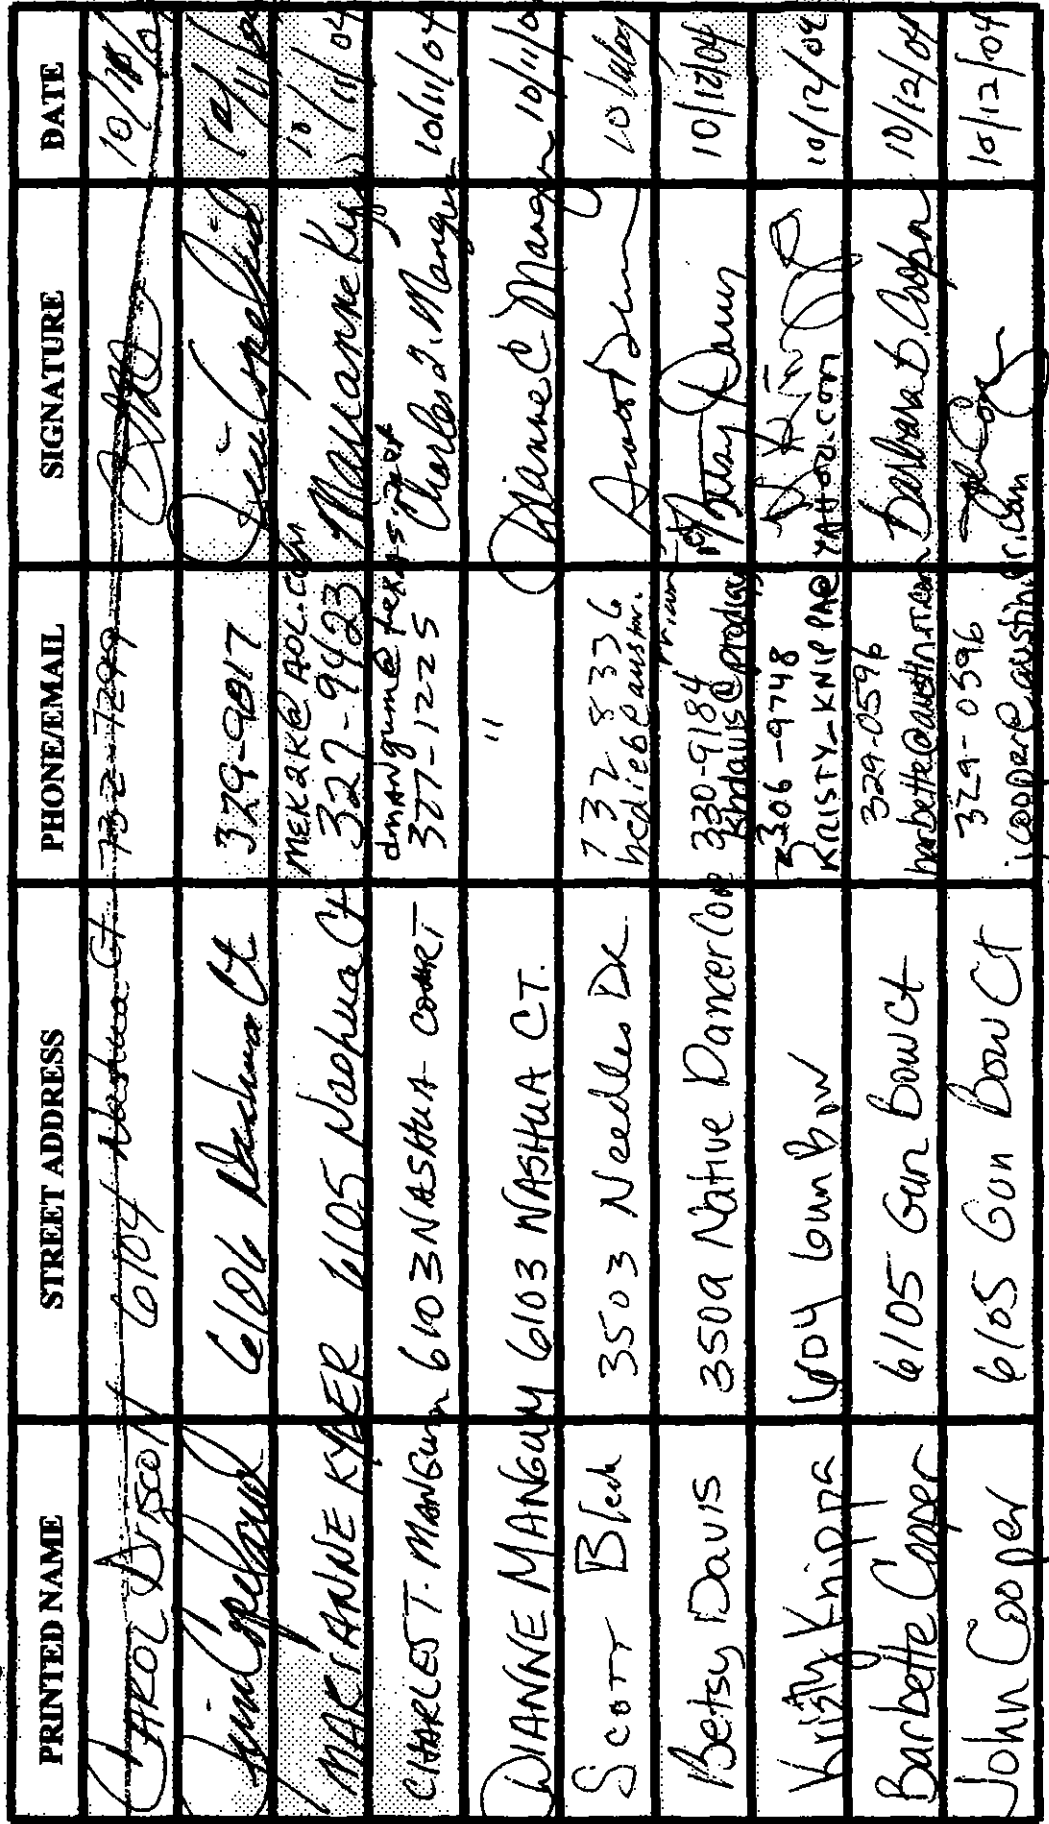 PRINTED NAME STREET ADDRESS PHONE/EMAIL SIGNATURE DATE
CAROL DRISCOLL 6104 Nashua Ct. 732-7299 10/11/04
Jim Copeland 6106 Nashua Ct 379-9817 10/11/04
MARIANNE KYGER 6105 Nashua Ct MEK2K@AOL.COM
327-9423 Marianne Kyger 10/11/04
CHARLES T. MANGUM 6103 NASHUA COURT
377-1225 Charles T. Mangum 10/11/04
DIANNE MANGUM 6103 NASHUA CT. " Dianne C Mangum 10/11/04
Scott 3503 Needles DR 732 8336
Betsy Davis 3509 Native Dancer Cove 330-9184
Betsy Davis 10/12/04
Kristy Knippa 6104 Gun Bow 306-9748
KRISTY_KNIPPA@YAHOO.COM 10/12/04
Barbette Cooper 6105 Gun Bow Ct 329-0596
barbette@austin.rr.com Barbara B. Cooper 10/12/04
John Cooper 6105 Gun Bow Ct 329-0596
jcooper@austin.rr.com 10/12/04